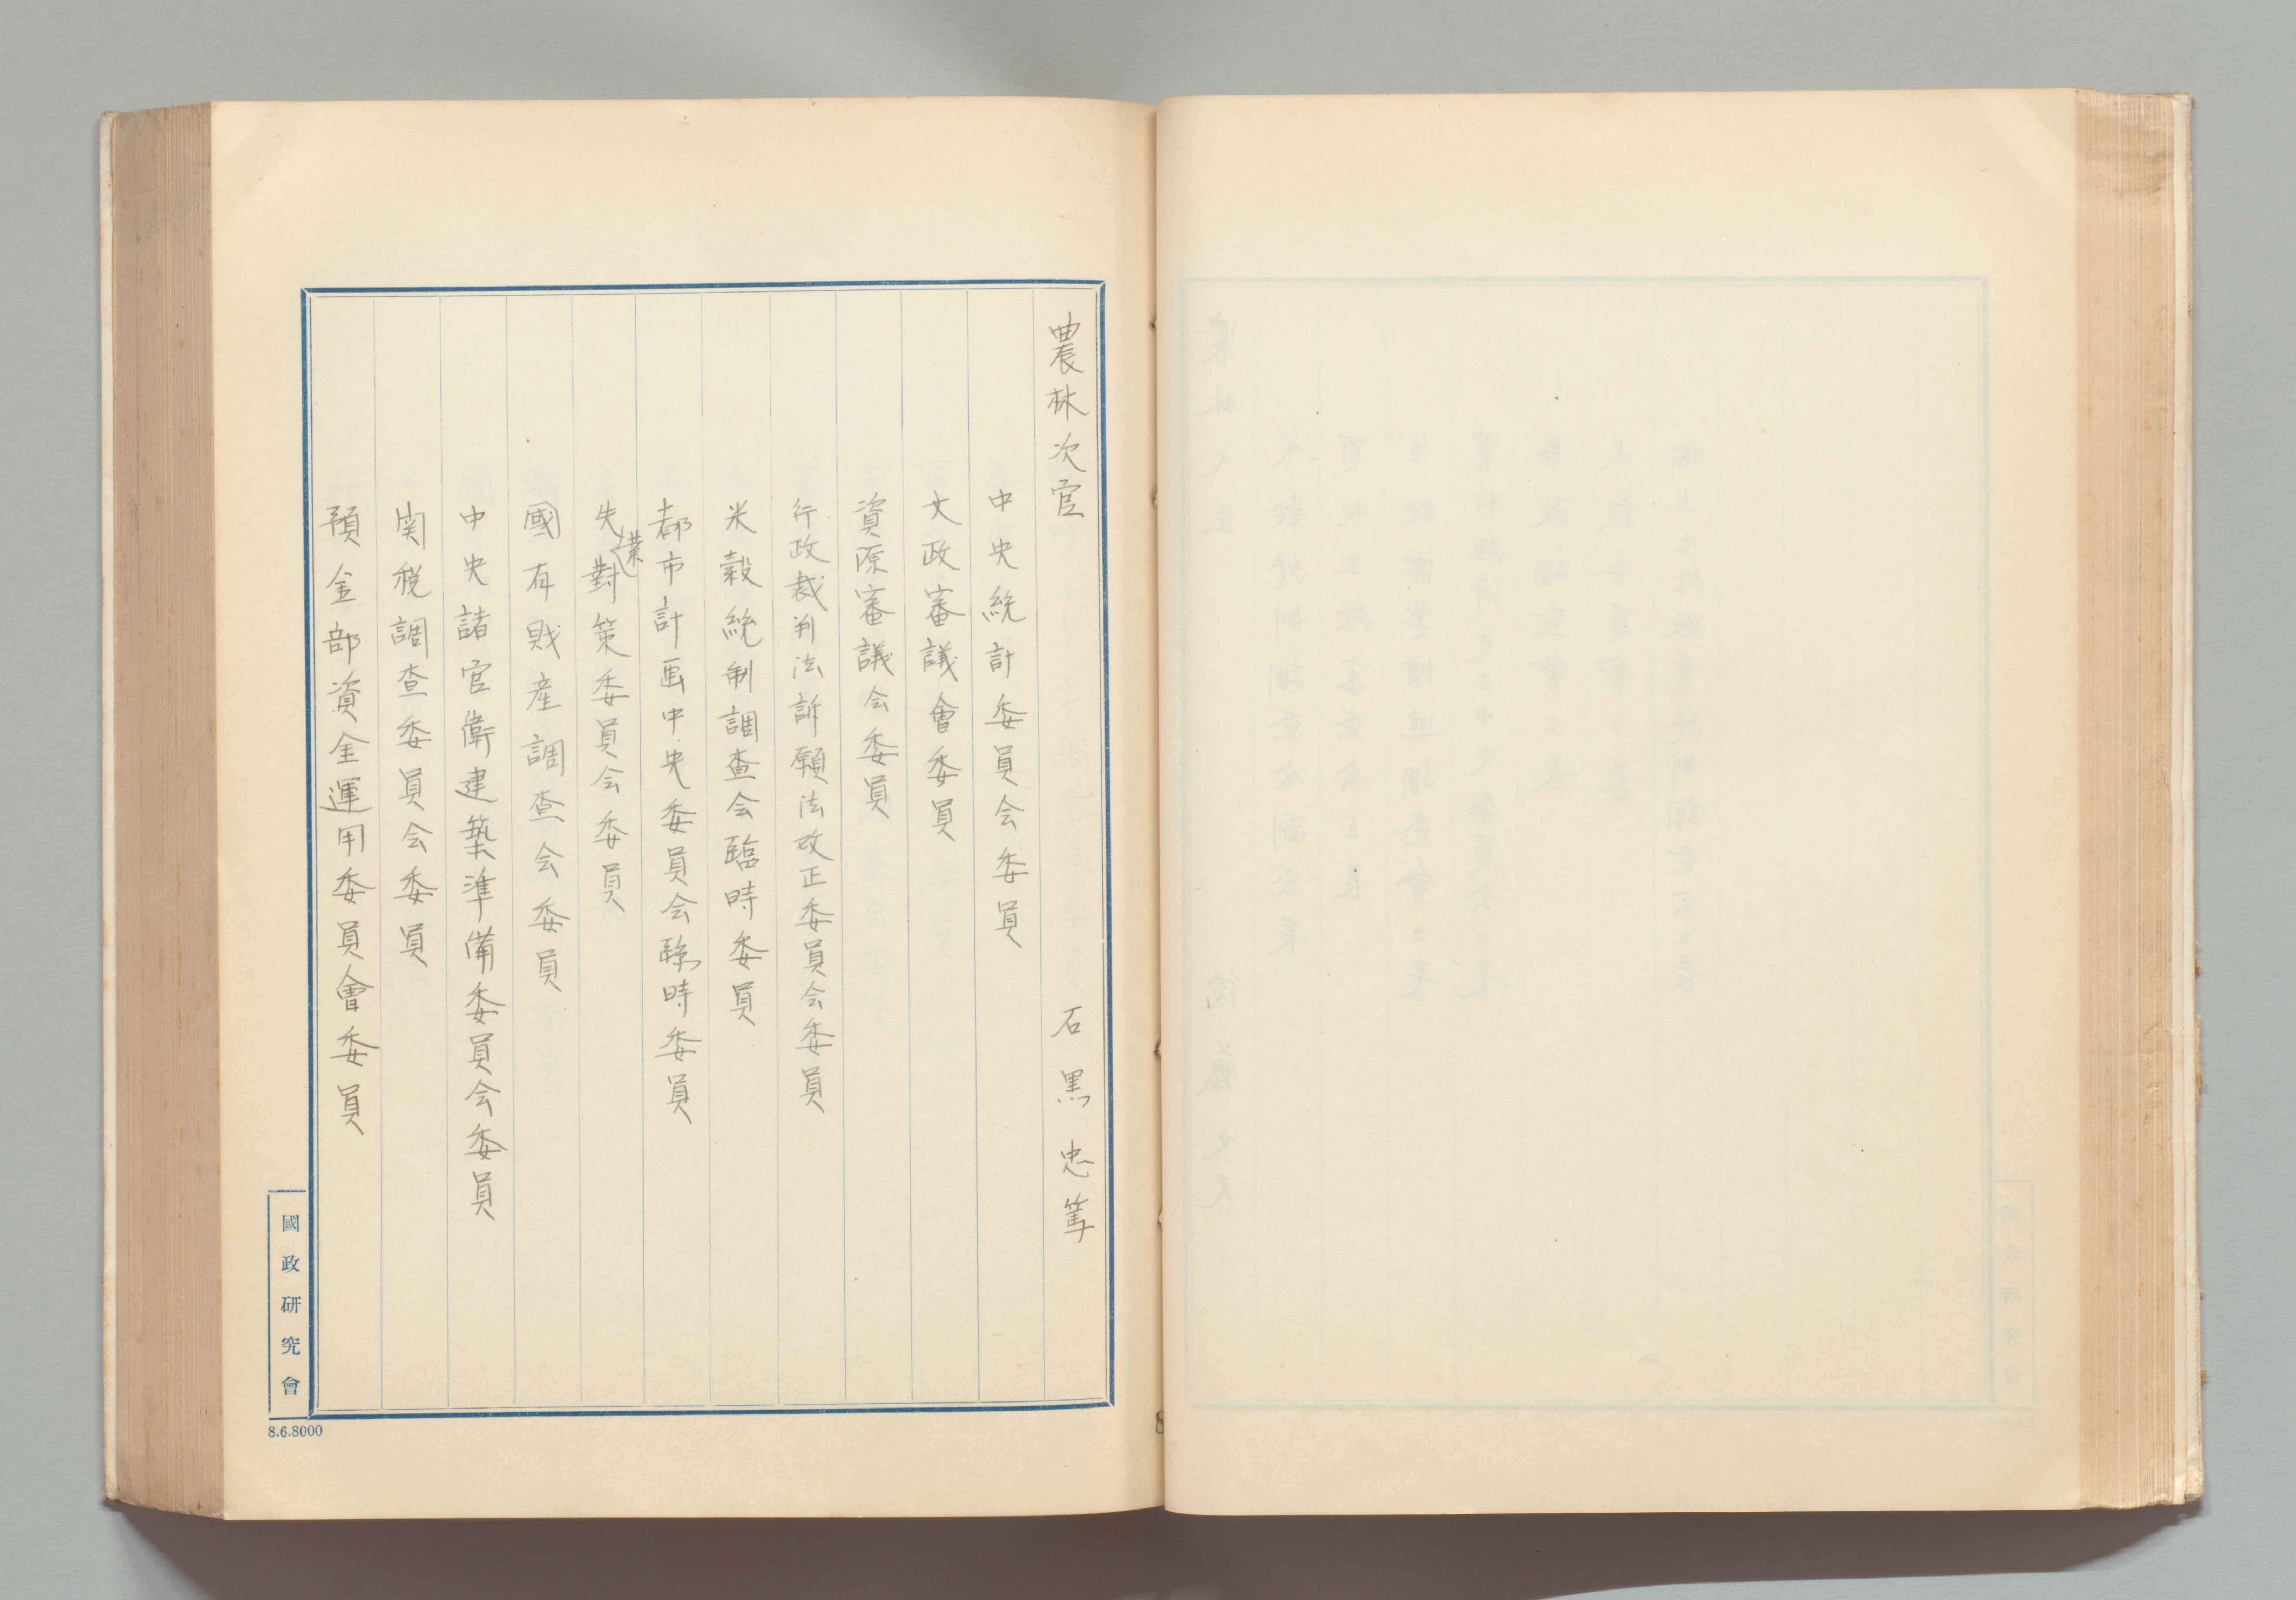 農林次官 石黒忠篤
中央統計委員会委員
文政審議會委員
資源審議会委員
行政裁判法訴願法改正委員会委員
米穀統制調查会臨時委員
都市計画中央委員会臨時委員
失業對策委員会委員
國有財産調查会委員
中央諸官衙建築準備委員会委員
関税調查委員会委員
預金部資金運用委員會委員
國政研究會
8.6.8000